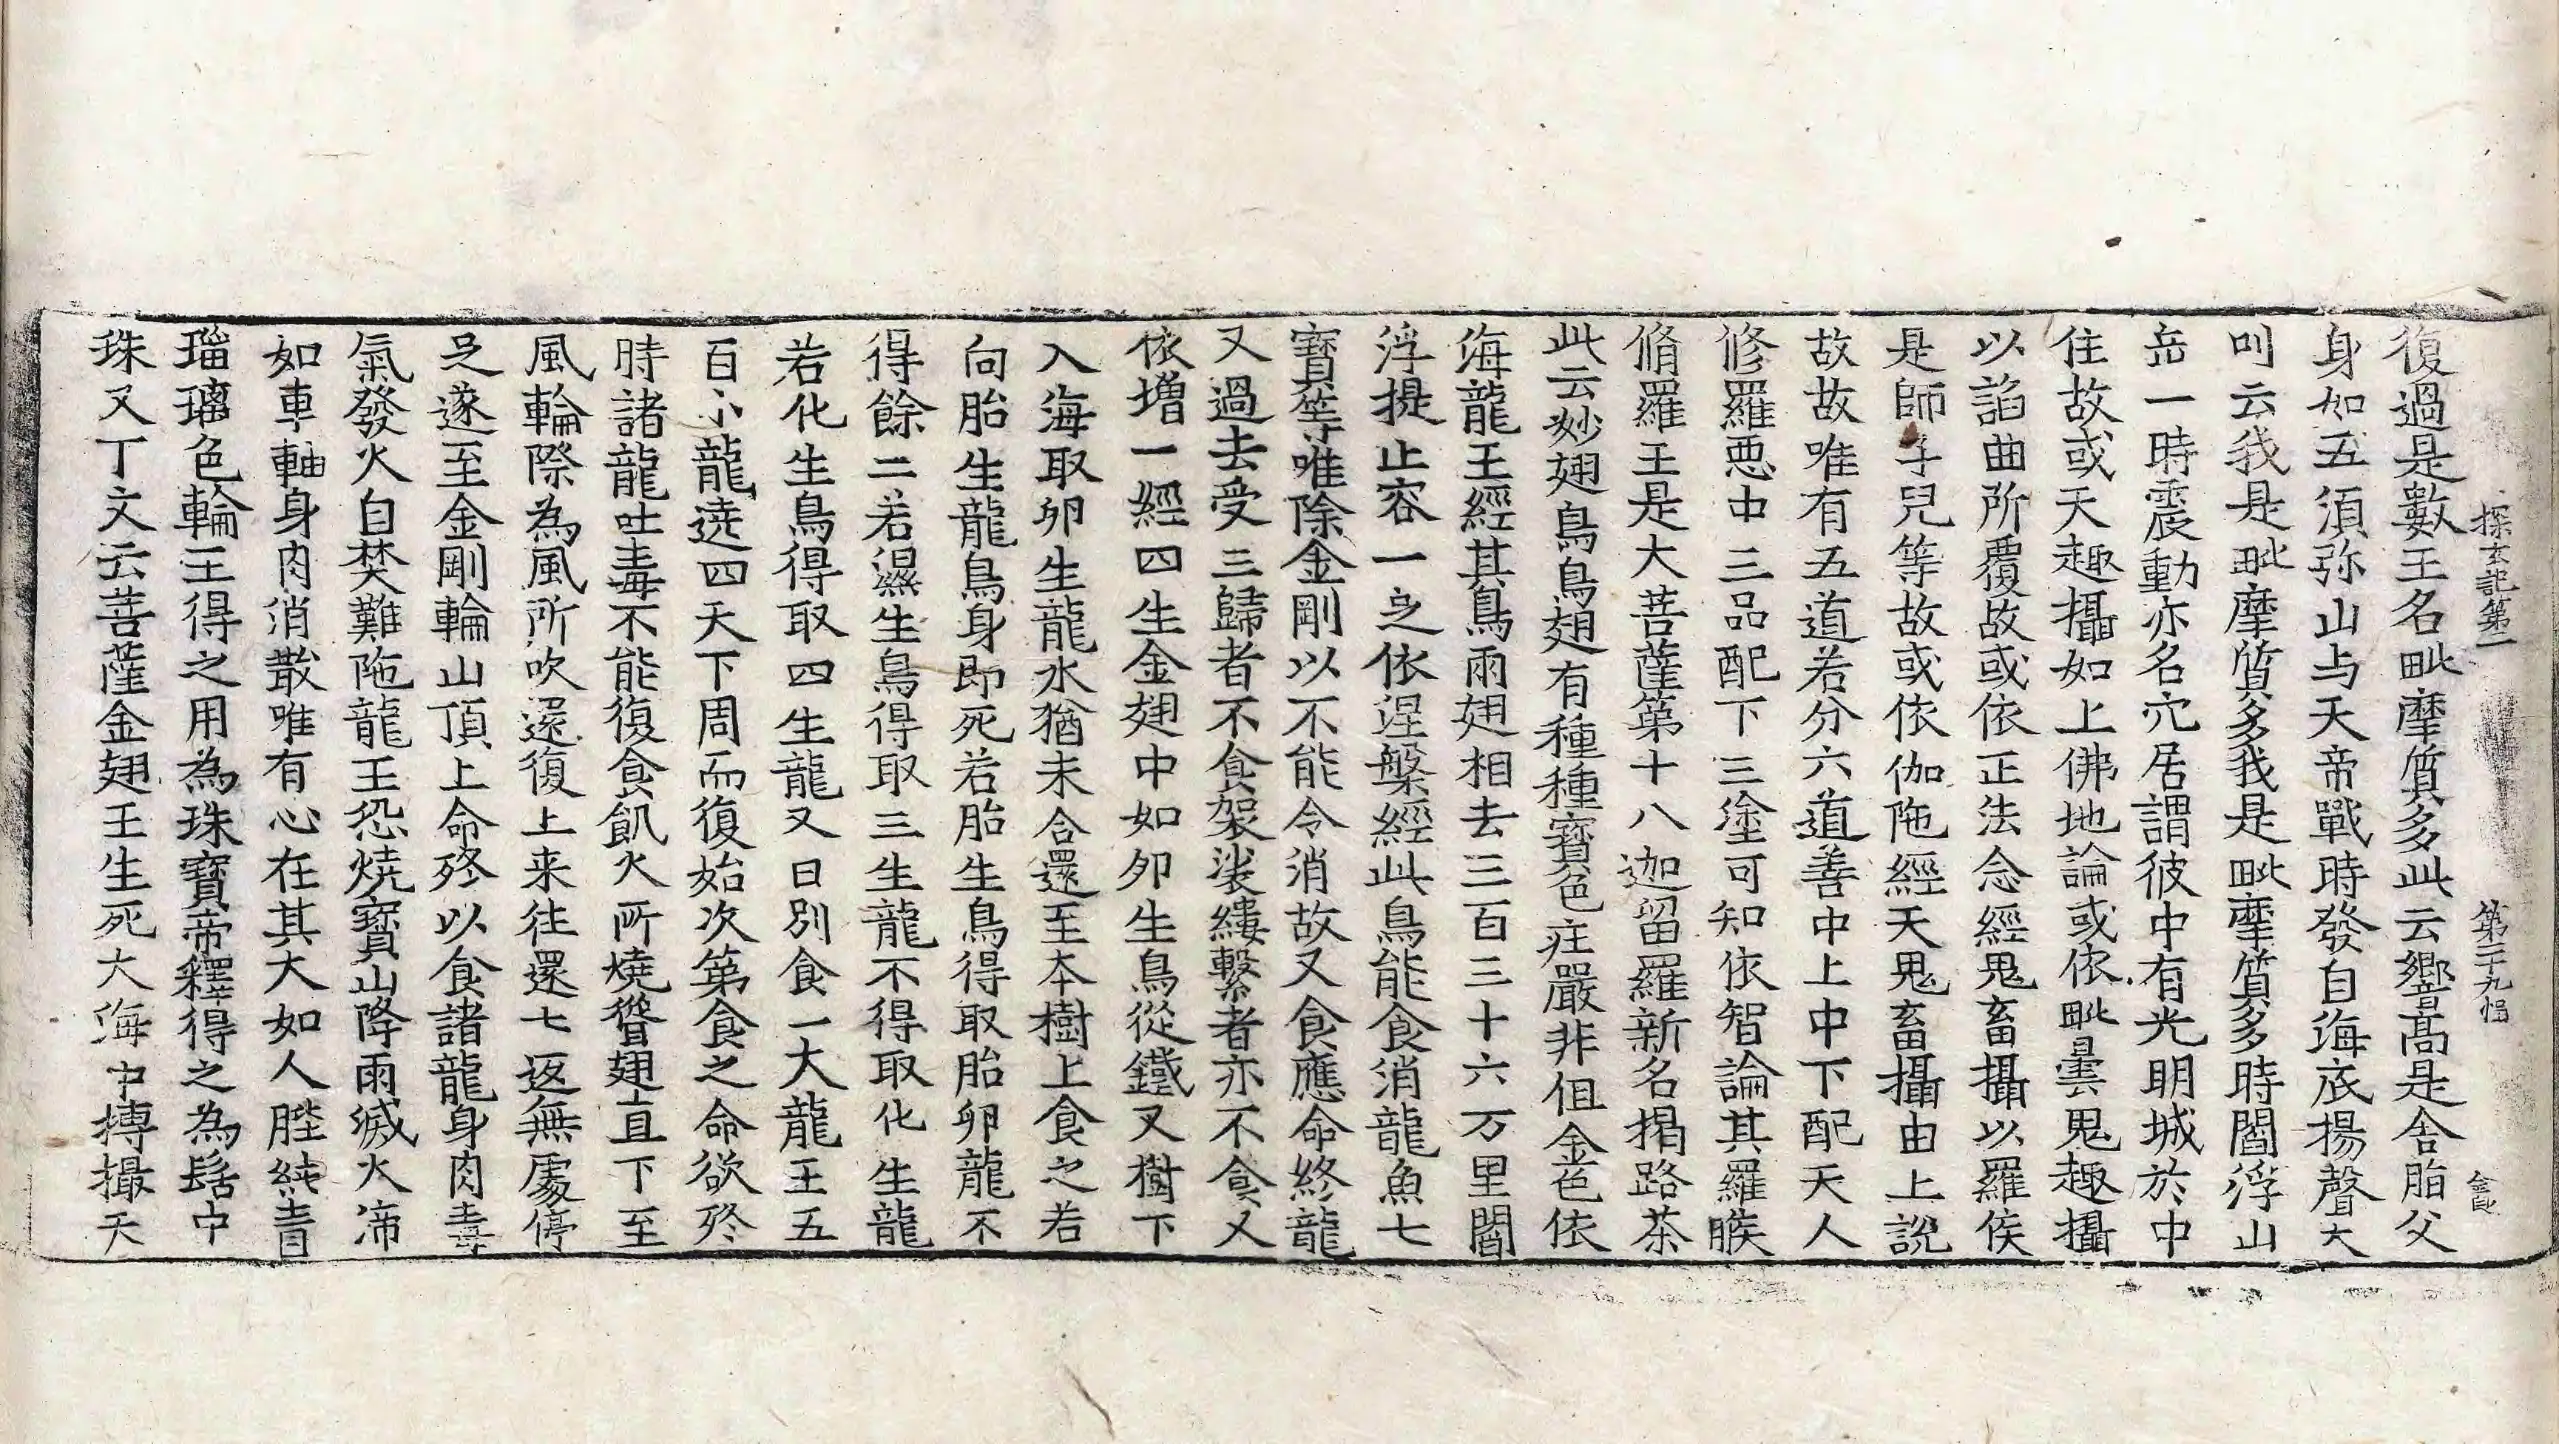 探玄記第二　第二十九幅
復過是數王名毗摩質多此云響髙是舍脂父
身如五湏弥山与天帝戰時發自海底揚聲大
叫云我是毗摩質多我是毗摩質多時閻浮山
岳一時震動亦名穴居謂彼中有光明城於中
住故或天趣攝如上佛地論或依毗曇鬼趣攝
以諂曲所覆故或依正法念經鬼畜攝以羅侯
是師子兒等故或依伽陁經天鬼畜攝由上說
故故唯有五道若分六道善中上中下配天人
修羅悪中三品配下三塗可知依智論其羅睺
脩羅王是大菩薩第十八迦留羅新名揭路茶
此云妙翅鳥鳥翅有種種寶色庄嚴非但金色依
海龍王經其鳥兩翅相去三百三十六万里閻
浮提止容一之依涅槃經此鳥能食消龍魚七
寶等唯除金剛以不能令消故又食應命終龍
又過去受三歸者不食袈裟縷繫者亦不食又
依增一經四生金翅中如卵生鳥從鐵叉樹下
入海取卵生龍水猶未合還至本樹上食之若
向胎生龍鳥身即死若胎生鳥得取胎卵龍不
得餘二若濕生鳥得取三生龍不得取化生龍
若化生鳥得取四生龍又日別食一大龍王五
百小龍遶四天下周而復始次第食之命欲終
時諸龍吐毒不能復食飢火所燒聳翅直下至
風輪際為風所吹還復上来往還七返無處停
足遂至金剛輪山頂上命終以食諸龍身肉毒
氣發火自焚難陁龍王恐燒寶山降雨滅火渧
如車軸身肉消散唯有心在其大如人䏶純青
瑠璃色輪王得之用為珠寶帝釋得之為髻中
珠又丁文云菩薩金翅王生死大海中搏撮天